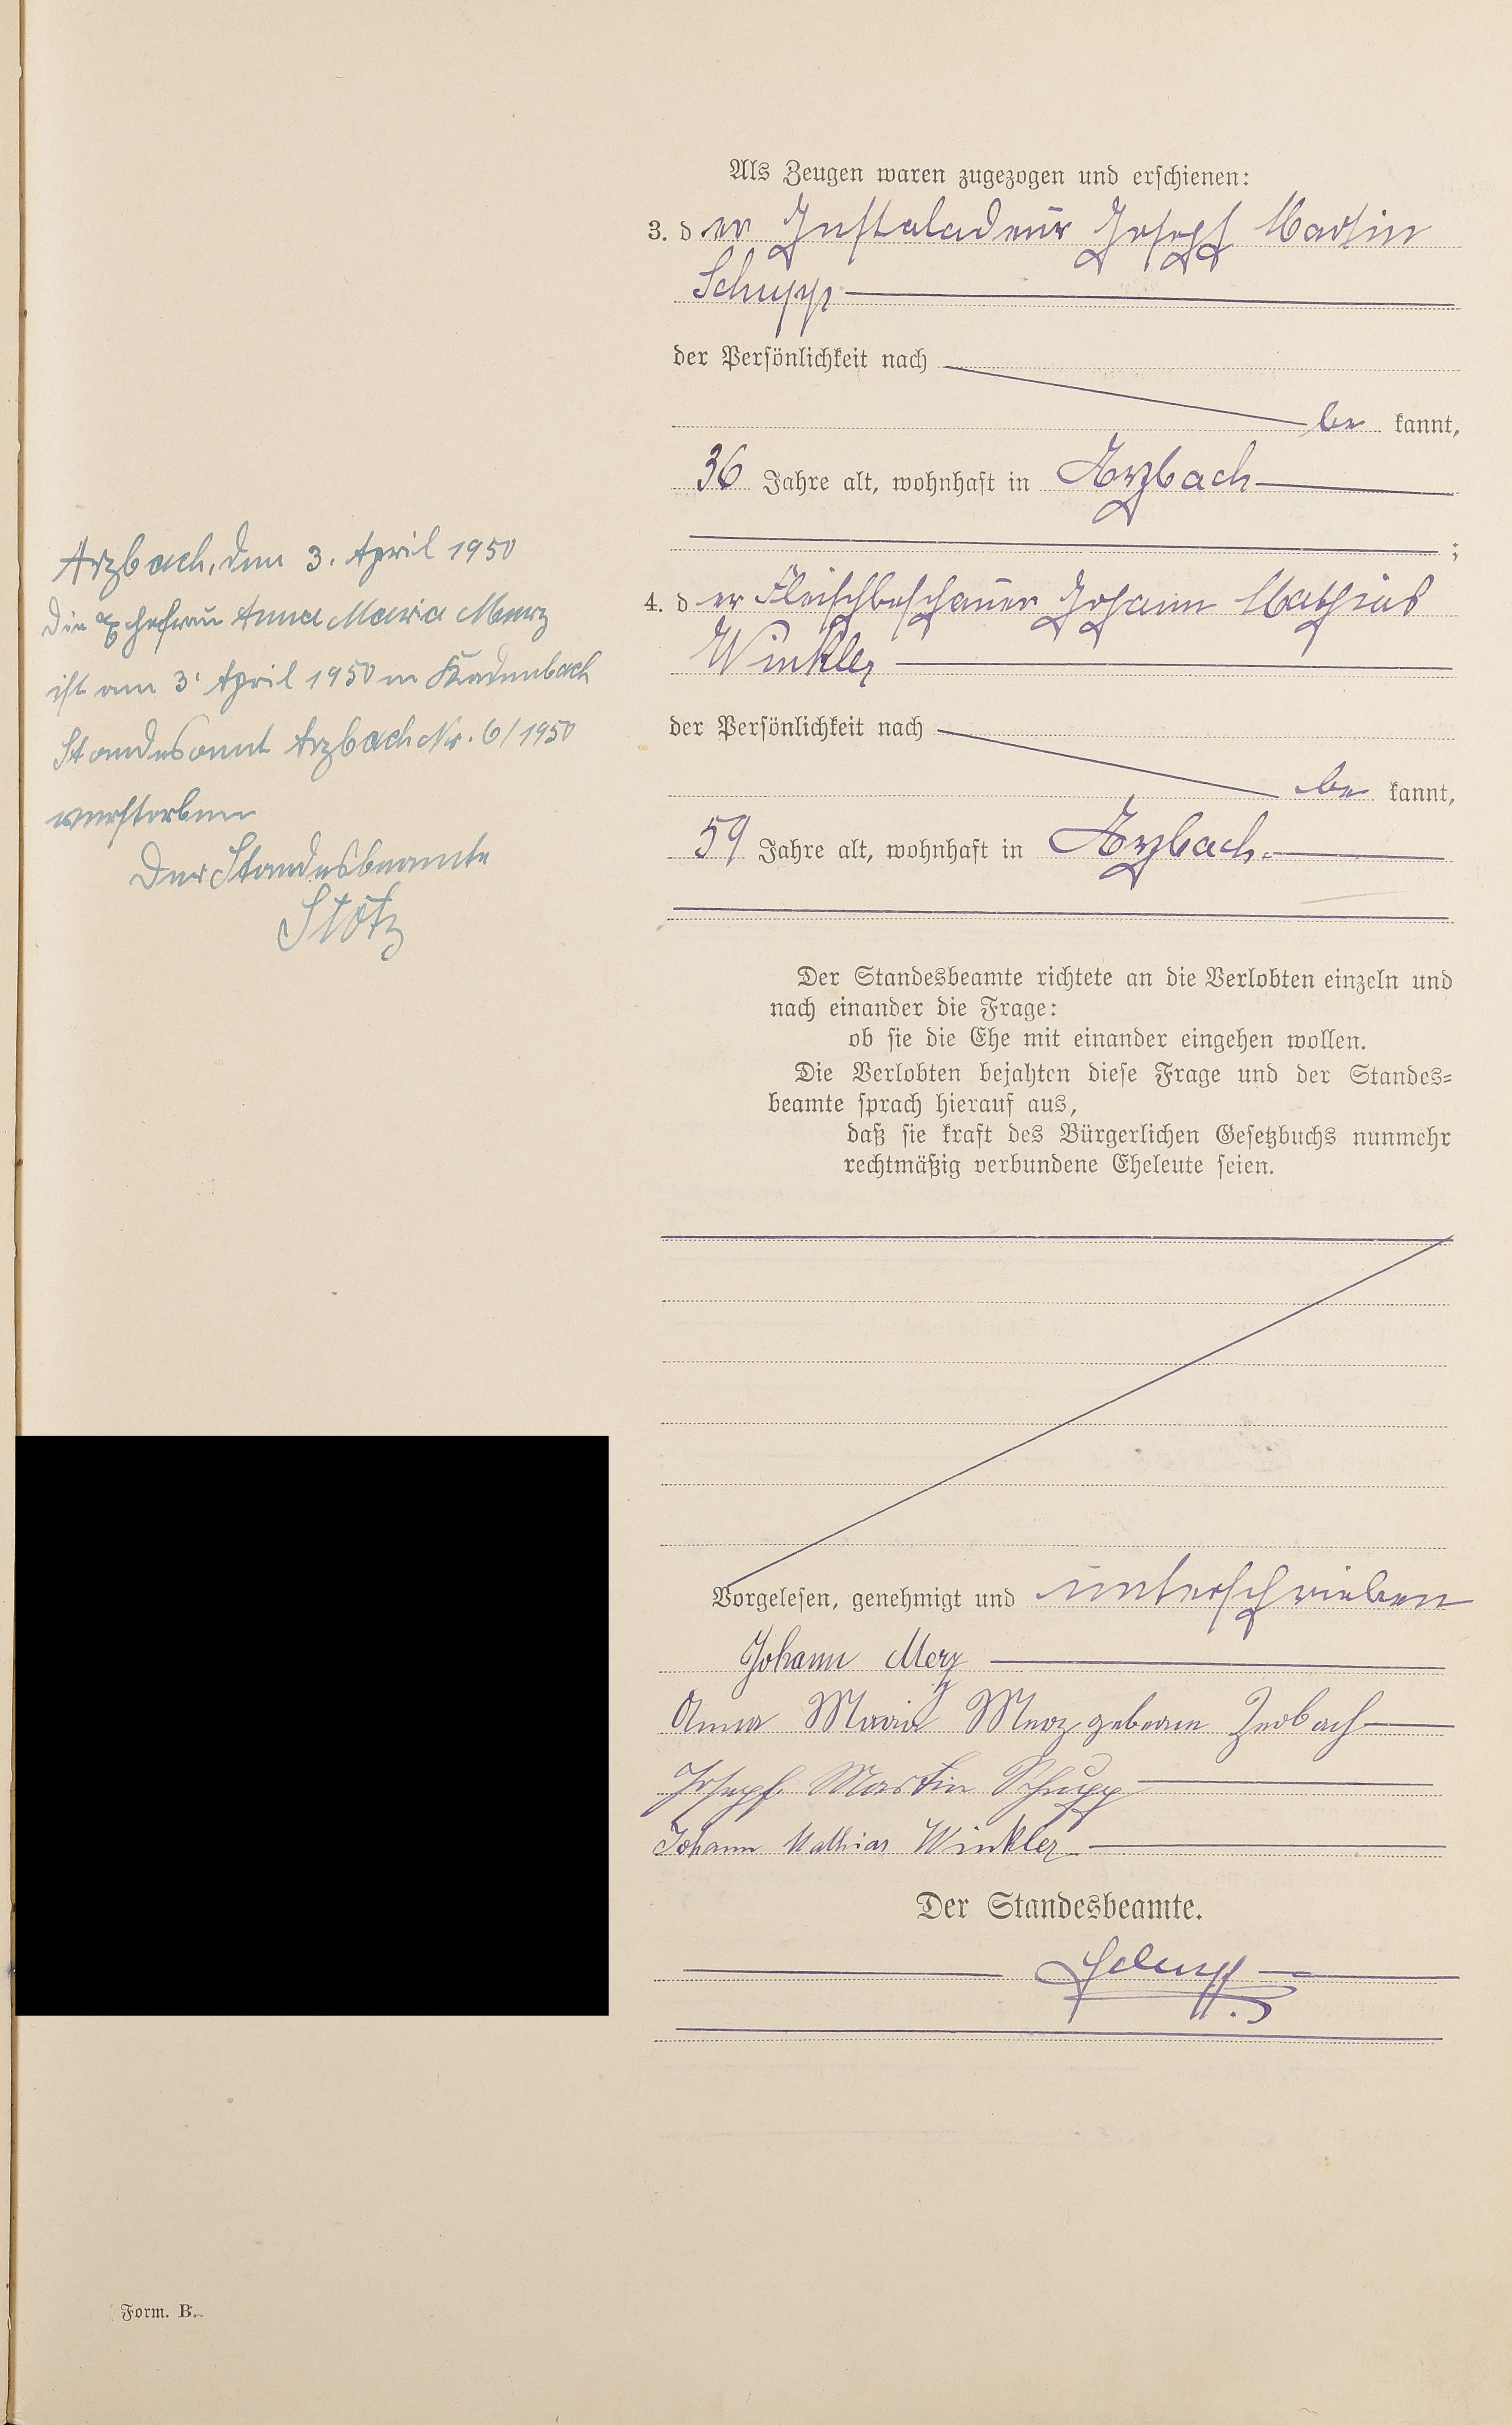 Als Zeugen waren zugezogen und erschienen:
3. der Installadeur Joseph Martin
Schupp
der Persönlichkeit nach
be kannt,
36 Jahre alt, wohnhaft in Arzbach
;
4. der Fleischbeschauer Johann Mathias
Winkler
der Persönlichkeit nach
be kannt,
59 Jahre alt, wohnhaft in Arzbach.
Der Standesbeamte richtete an die Verlobten einzeln und
nach einander die Frage:
ob sie die Ehe mit einander eingehen wollen.
Die Verlobten bejahten diese Frage und der Standes=
beamte sprach hierauf aus,
daß sie kraft des Bürgerlichen Gesetzbuchs nunmehr
rechtmäßig verbundene Eheleute seien.
Vorgelesen, genehmigt und unterschrieben
Johann Merz
Anna Maria Merz geborne Zerbach
Joseph Martin Schupp
Johann Mathias Winkler
Der Standesbeamte.
Arzbach, den 3. April 1950
Die Ehefrau Anna Maria Merz
ist am 3. April 1950 in Kadenbach
Standesamt Arzbach Nr. 6/1950
verstorben
Der Standesbeamte
Stotz
Form. B.